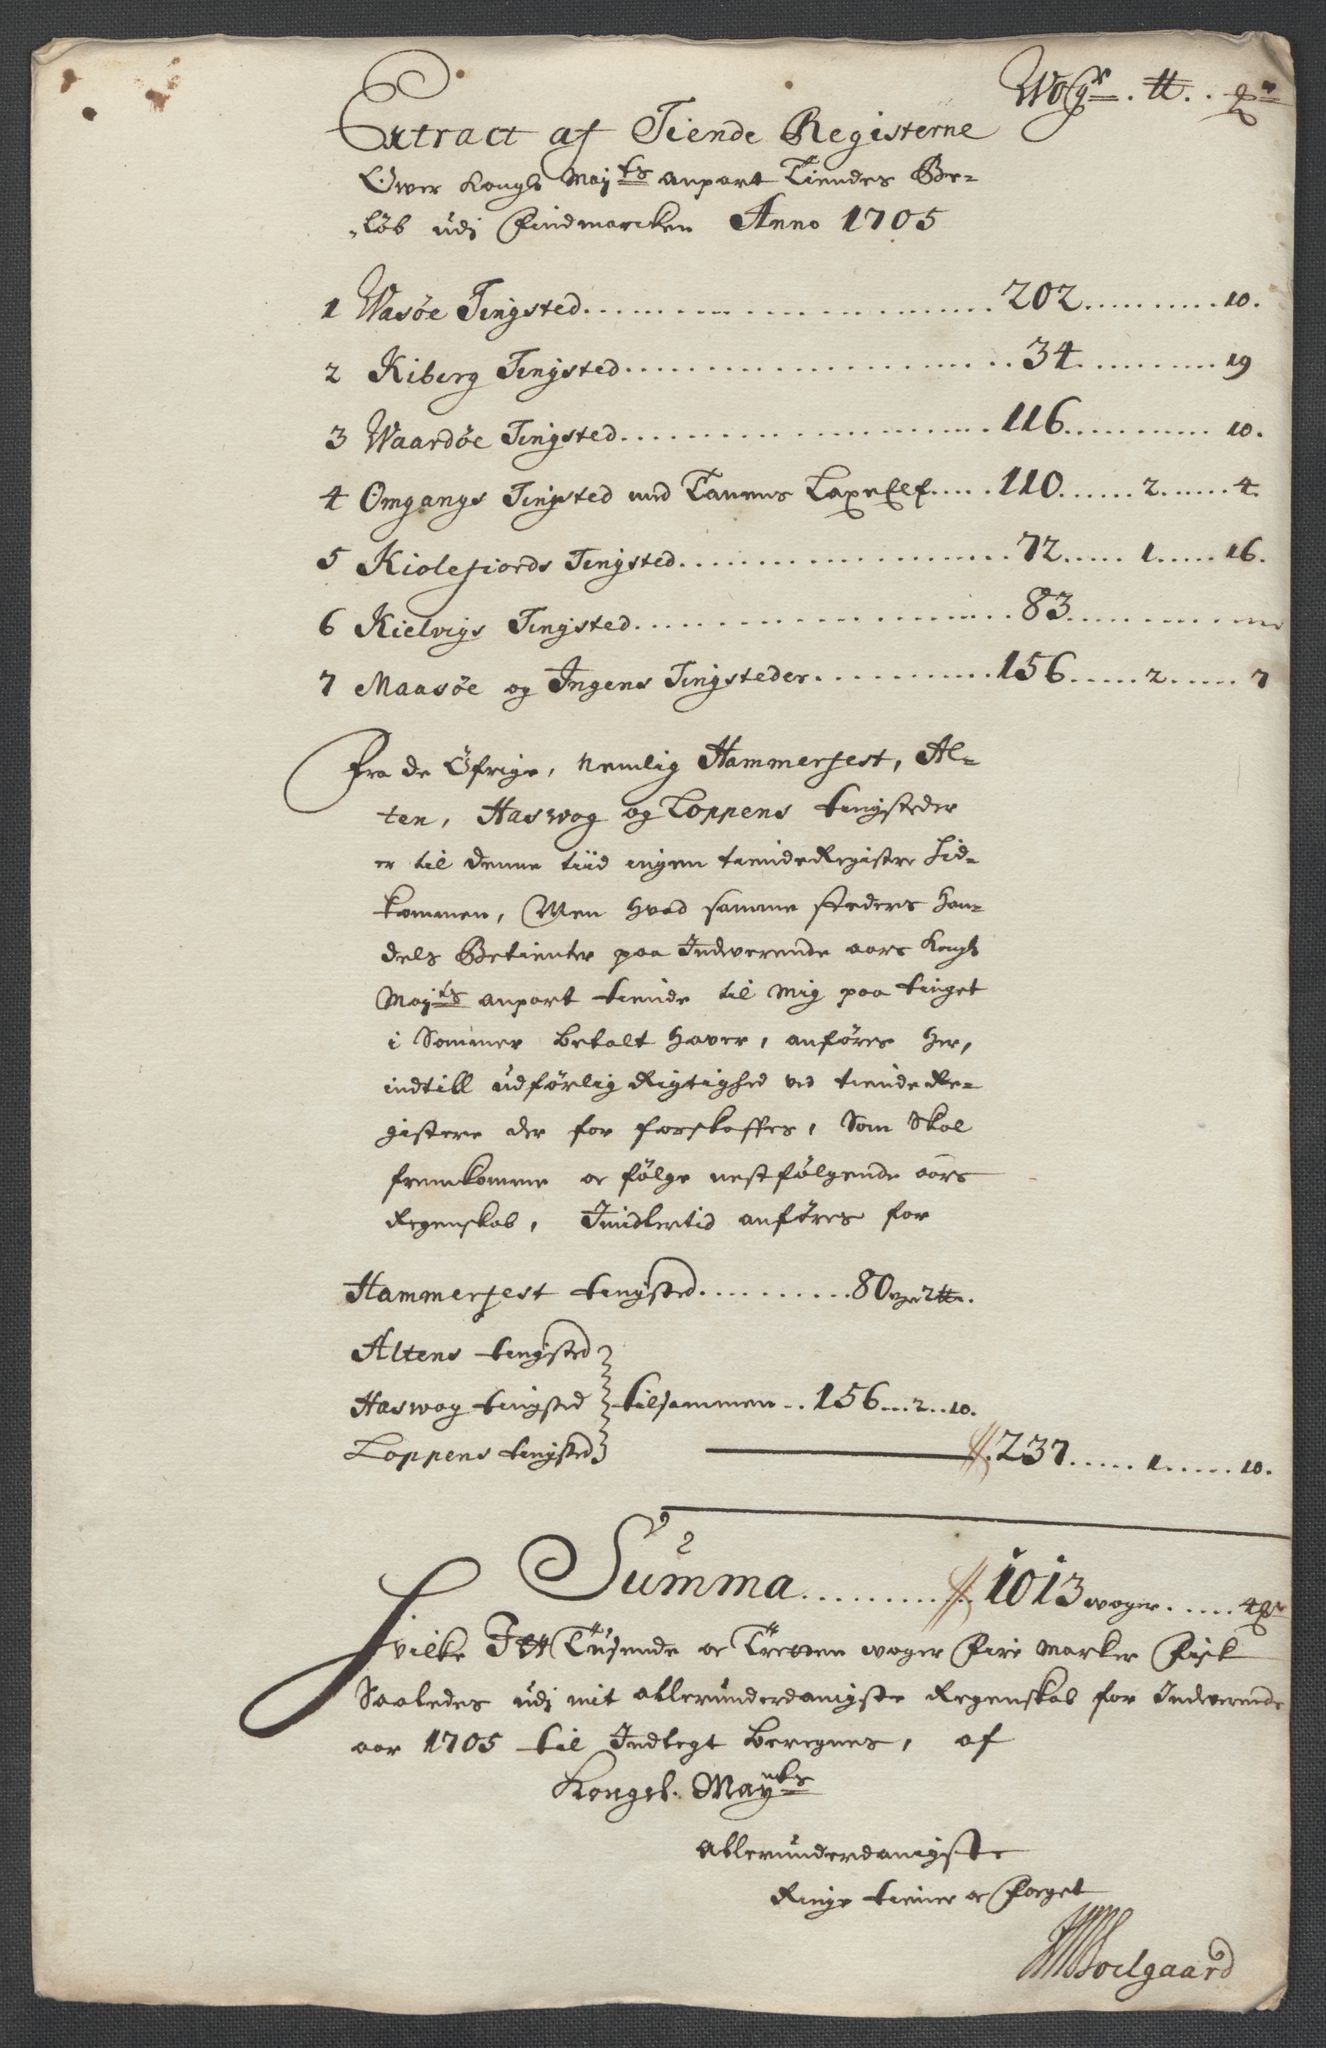 Wog: . ℔. .
Extract af Tiende Registerne
Ower Kongl: Mayts anpart Tiendes Be-
løb udj Findmarcken Anno 1705
1 Wasøe Tingsted 202 10.
2 Kiberg Tingsted 34 19
3 Waardøe Tingsted 116 10.
4 Omgangs Tingsted med Tanens LaxeElf 110 2 4.
5 Kiolefiords Tingsted 72 1 16.
6 Kielvigs Tingsted 83
7 Maasøe og Ingens Tingsteder 156 2 7
Fra de Öfrige, Nemlig Hammerfest, Al-
ten, Haswog og Loppens tingsteder
er til denne tiid ingen tiendeRegistre hid-
kommen, Men hvad samme steders Han-
dels Betienter paa Indwerende aars Kongl:
Mayts anpart tiende til Mig paa tinget
i Sommer betalt haver, anføres her,
indtill udførlig Rigtighed ved tiendeRe-
gistere der for forskaffes, Som Skal
fremkomme oc følge nestfølgende aars
Regenskab, Imidlertid anføres for
Hammerfest tingsted 80 wger 2 ℔.
Altens tingsted
Haswog tingsted tilsammen 156 2 10.
Loppens tingsted
237 1 10.
Summa 1013 woger 4
Hvilke Itt Tusende oc Tretten woger Fire Marker Fisk
Saaledes udj mit allerunderdanigste Regenskab for Indwerende
aar 1705 til Indtegt beregnes, af
Kongel. Mayts
allerunderdanigste
Ringe tiener oc Foeget
Soelgaard